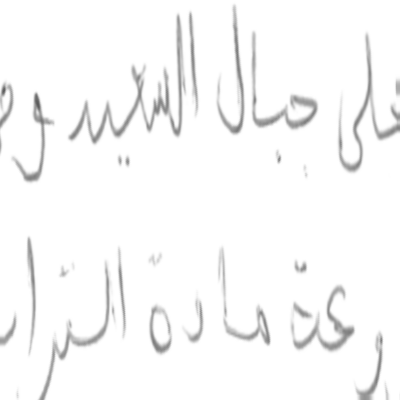 على جبال السعيد و
وعدة مادة الترا